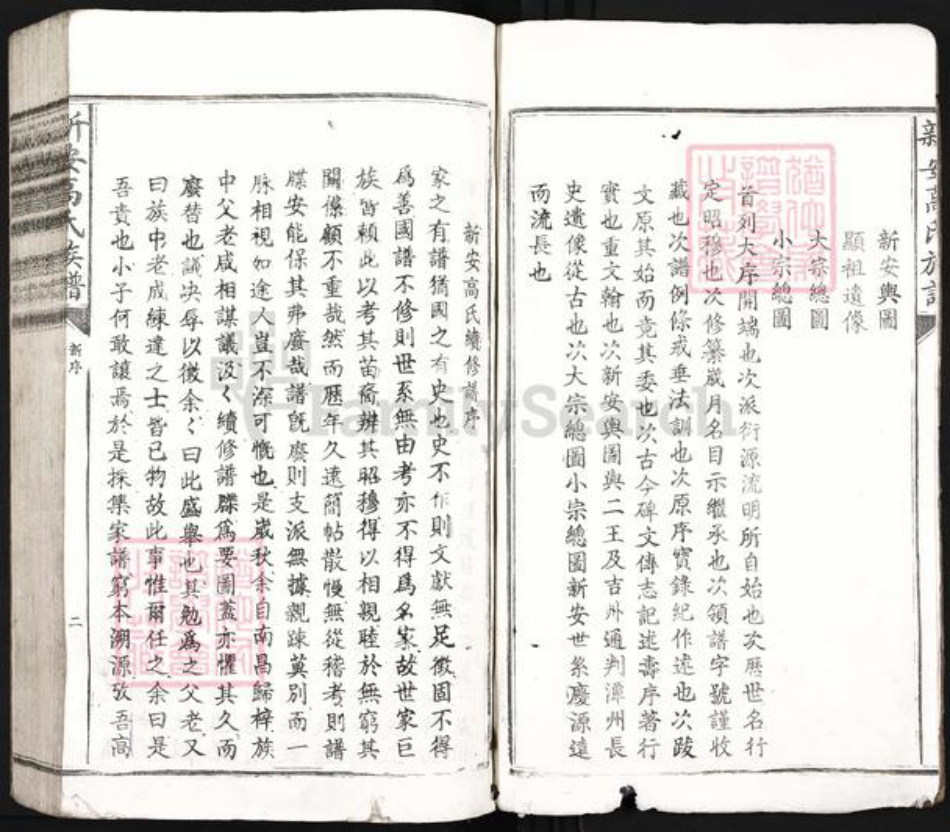 新安輿圖
顯祖遺像
大宗總圖
小宗總圖
首列大序開端也次派衍源流明所自始也次歷世名行
定昭穆也次修纂歲月名目示繼承也次領譜字號謹收
藏也次譜例條戒垂法訓也次原序實錄紀作述也次跋
文原其始而竟其委也次古今碑文傳志記述壽序著行
實也重文翰也次新安輿圖與二王及吉州通判漳州長
史遺像從古也次大宗總圖小宗總圖新安世系慶源遠
而流長也
新安高氏族譜
新安高氏續修譜序
家之有譜猶國之有史也史不作則文獻無足徵固不得
爲善國譜不修則世系無由考亦不得爲名家故世家巨
族皆賴此以考其苗裔辨其昭穆得以相親睦於無窮其
關係顧不重哉然而歷年久遠簡帖散慢無從稽考則譜
牒安能保其弗廢哉譜旣廢則支派無據親踈莫別而一
脉相視如途人豈不深可慨也是歲秋余自南昌歸梓族
中父老咸相謀議汲々續修譜牒爲要圖蓋亦懼其久而
廢替也議决辱以徵余々曰此盛舉也其勉爲之父老又
曰族中老成練達之士皆已物故此事惟爾任之余曰是
吾責也小子何敢讓焉於是採集家譜窮本溯源攷吾高
新安高氏族譜
新序
二